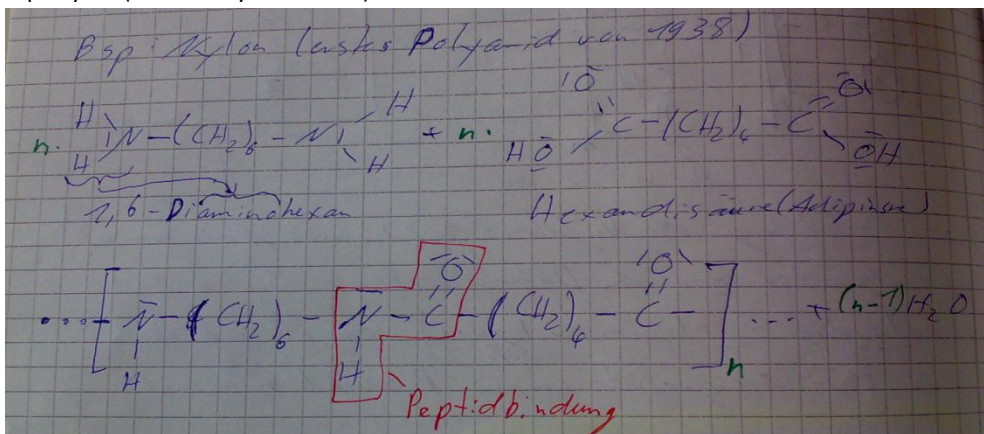 Bsp: Nylon (erstes Polyamid von 1938)
n · H H N – (CH2)6 – N H H + n · HO O C – (CH2)4 – C O OH
1,6 - Diaminohexan Hexandisäure (Adipinsre)
... [ N H – (CH2)6 – N H – C O – (CH2)4 – C O – ]n ... + (n-1) H2O
Peptidbindung